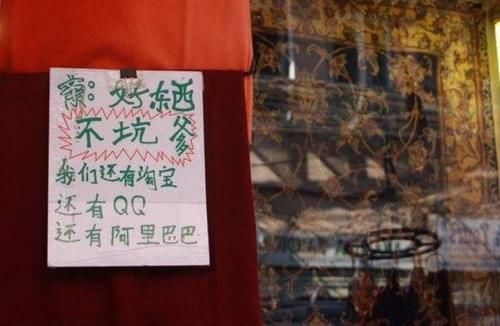 察：好东西
不坑爹
我们还有淘宝
还有QQ
还有阿里巴巴